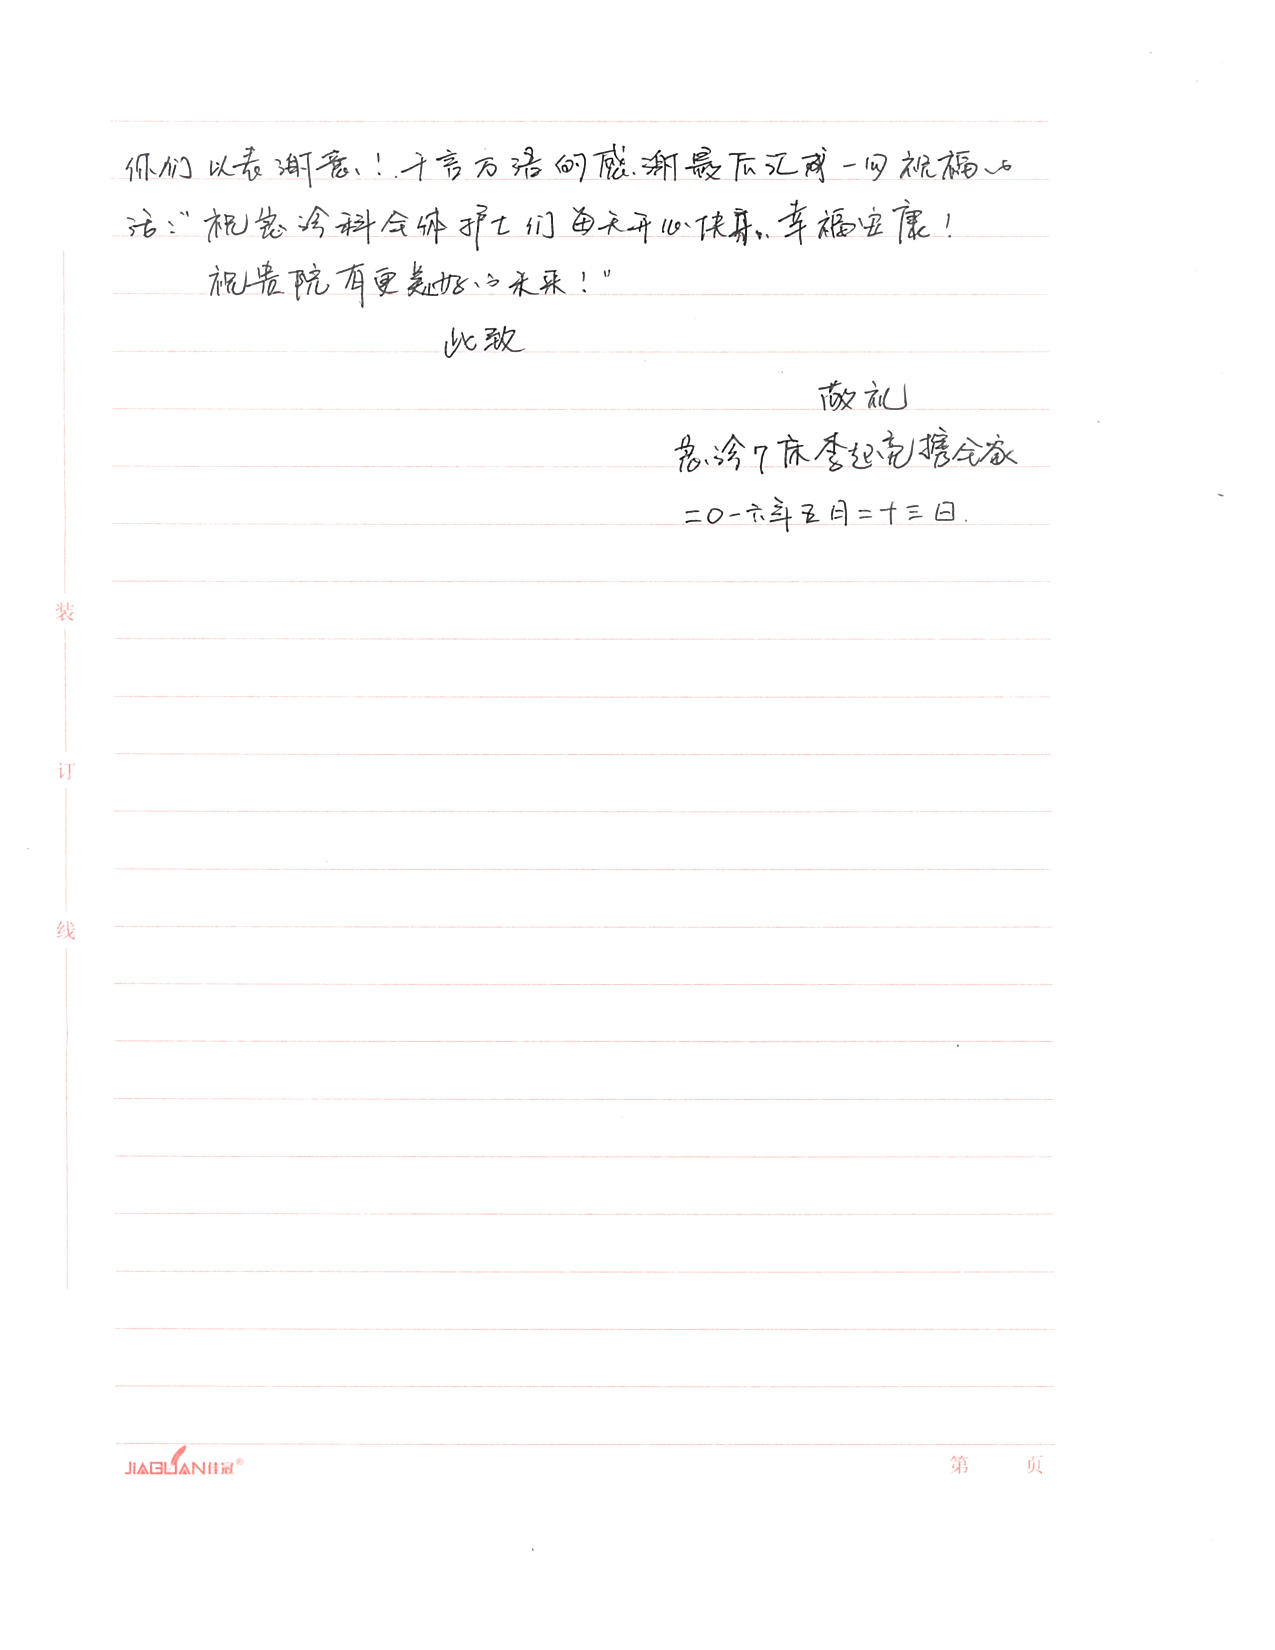 你们以表谢意！千言万语的感谢最后汇成一句祝福的
话：“祝急诊科全体护士们每天开心快乐，幸福安康！
祝贵院有更美好的未来！”
此致
敬礼
急诊7床李起亮携全家
二〇一六年五月二十三日.
装
订
线
JIAGUAN佳冠®
第 页